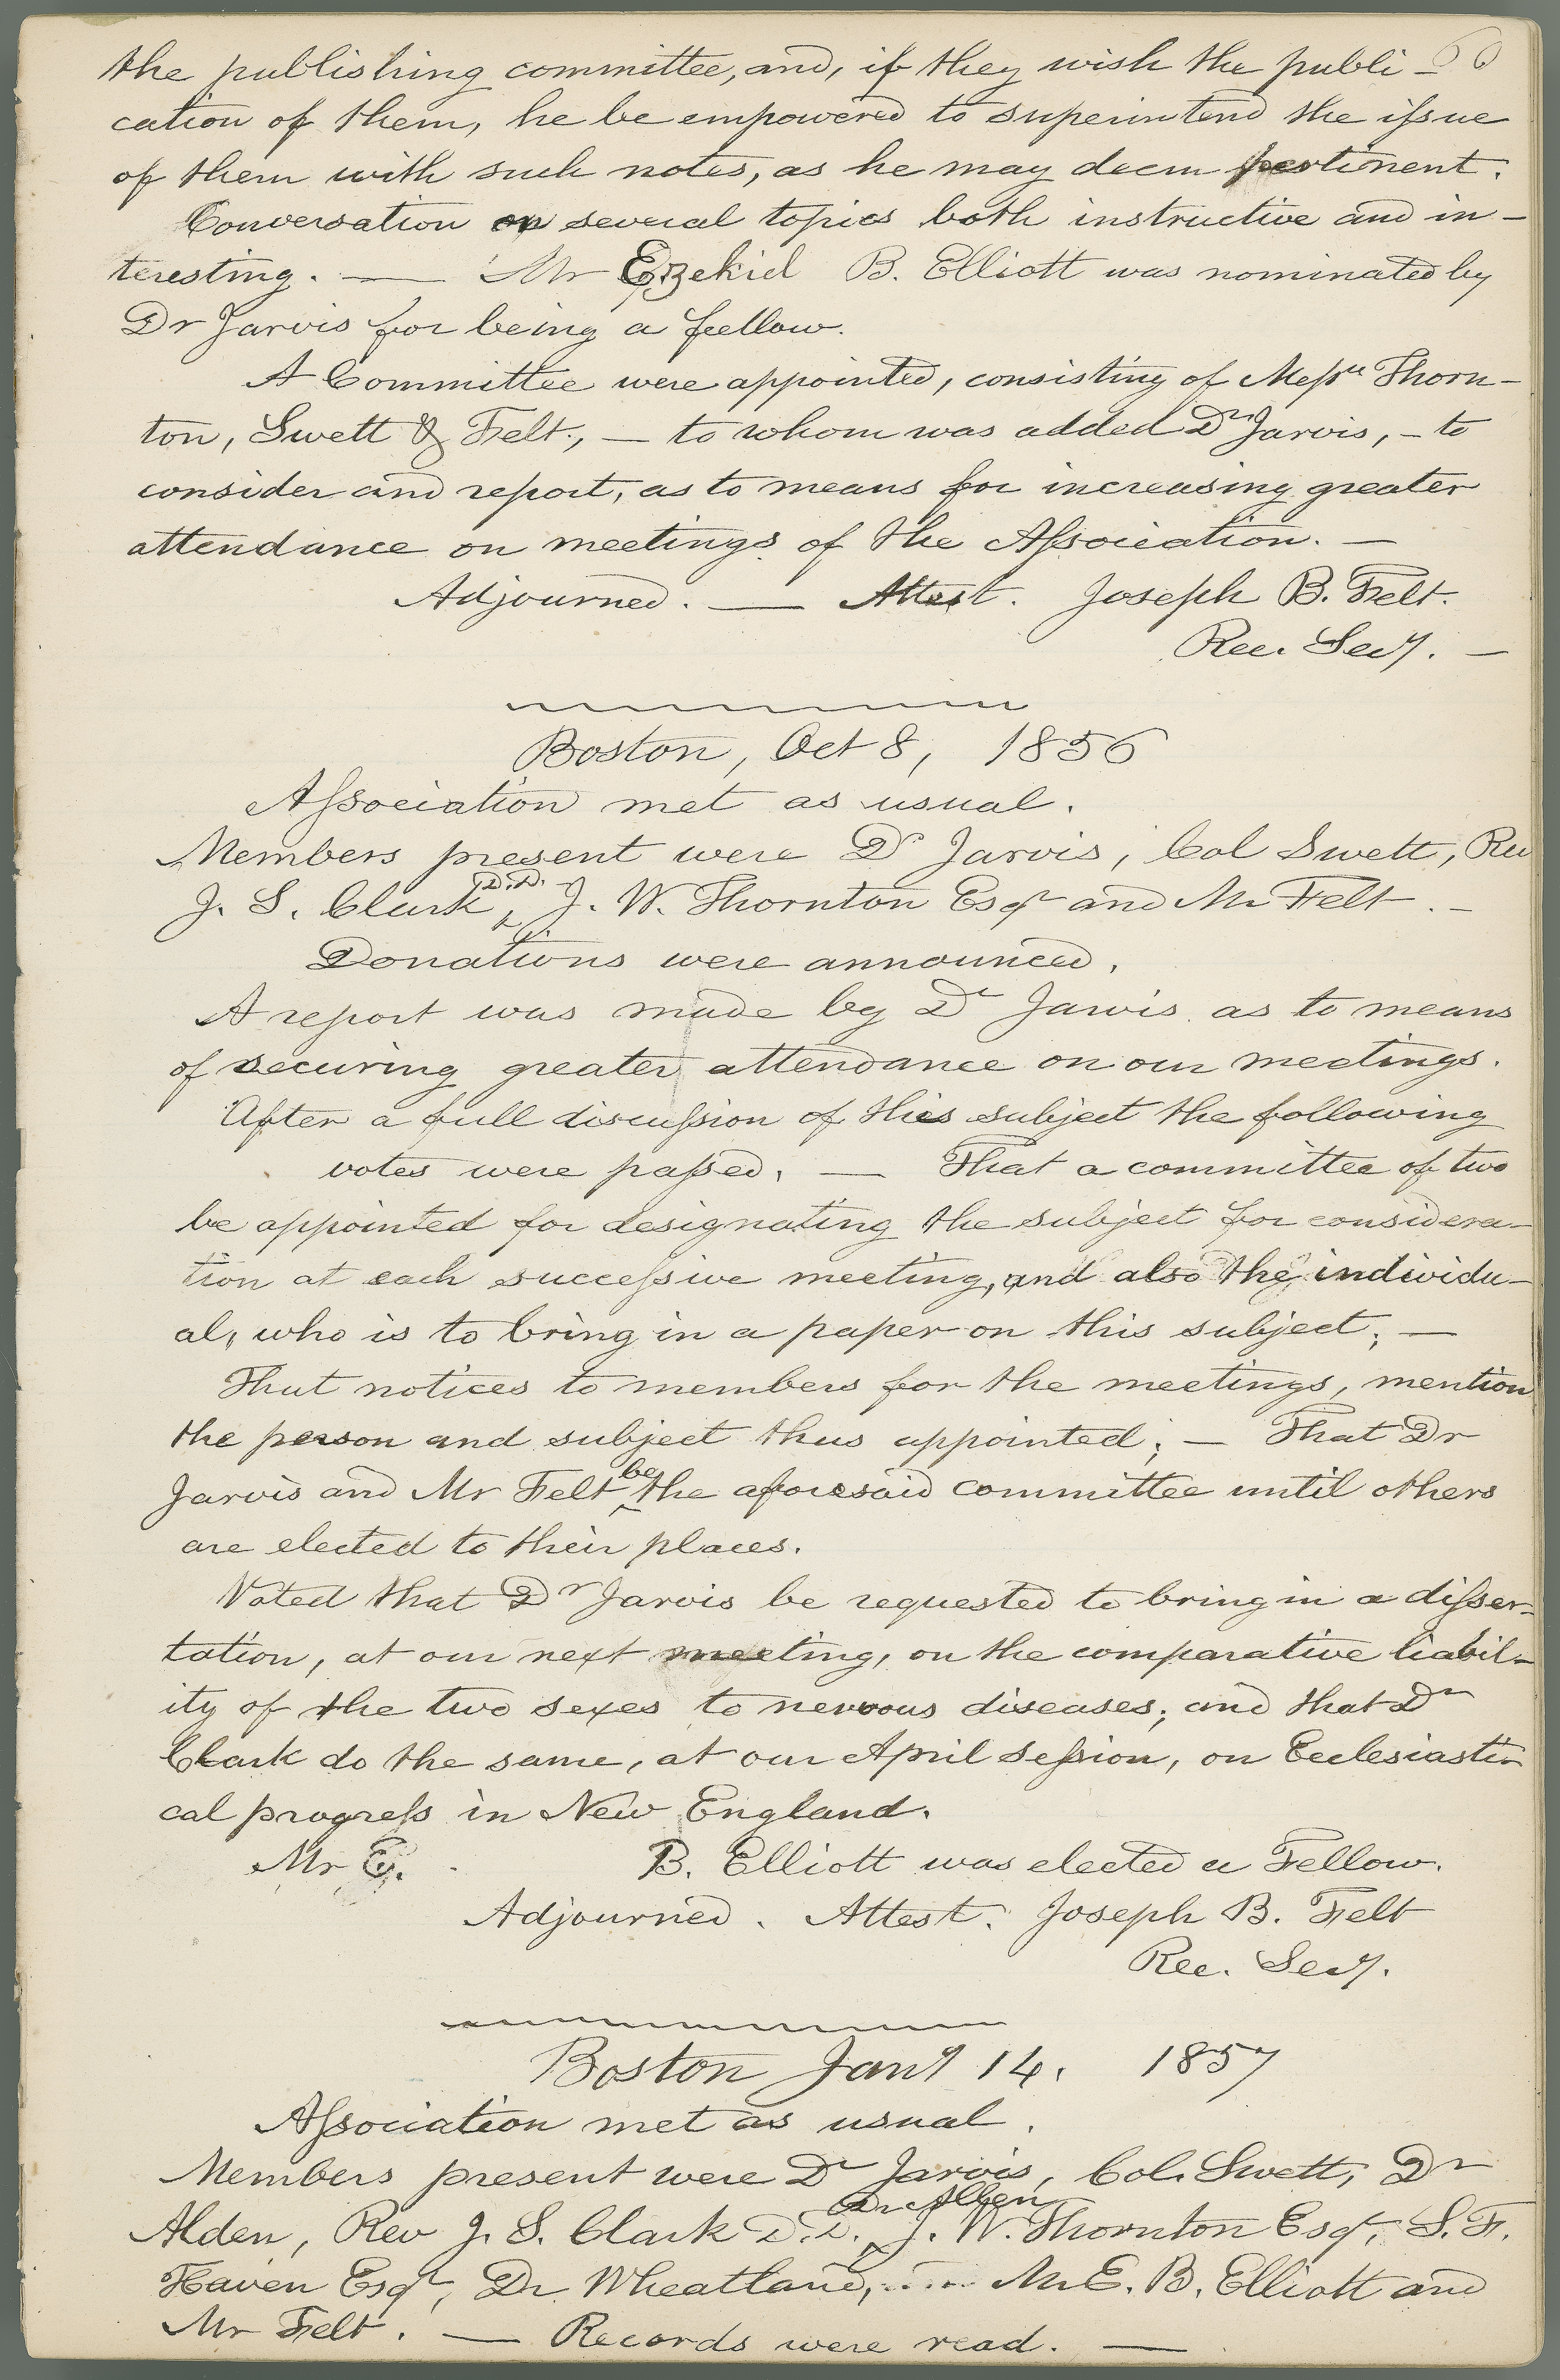 the publishing committee, and, if they wish the publi - 60
cation of them, he be empowered to superintend the issue
of them with such notes, as he may deem pertinent.
Conversation on several topics both instructive and in-
teresting. — Mr Ezekiel B. Elliott was nominated by
Dr Jarvis for being a fellow.
A Committee were appointed, consisting of Messrs Thorn-
ton, Swett & Felt, — to whom was added Dr Jarvis, - to
consider and report, as to means for increasing greater
attendance on meetings of the Association. —
Adjourned. — Attest. Joseph B. Felt.
Rec. Secy. —
Boston, Oct 8, 1856
Association met as usual.
Members present were Dr Jarvis, Col Swett, Rev
J. S. Clark D.D., J. W. Thornton Esqr and Mr Felt. —
Donations were announced.
A report was made by Dr Jarvis as to means
of securing greater attendance on our meetings.
After a full discussion of this subject the following
votes were passed. — That a committee of two
be appointed for designating the subject for considera-
tion at each successive meeting, and also the individu-
al, who is to bring in a paper on this subject; —
That notices to members for the meetings, mention
the person and subject thus appointed; — That Dr
Jarvis and Mr Felt be the aforesaid committee until others
are elected to their places.
Voted that Dr Jarvis be requested to bring in a disser-
tation, at our next meeting, on the comparative liabil-
ity of the two sexes to nervous diseases; and that Dr
Clark do the same, at our April session, on Ecclesiasti-
cal progress in New England.
Mr E. B. Elliott was elected a Fellow.
Adjourned. Attest. Joseph B. Felt
Rec. Secy.
Boston Jany 14. 1857
Association met as usual.
Members present were Dr Jarvis, Col. Swett, Dr
Alden, Rev J. S. Clark D.D., Dr Allen J. W. Thornton Esqr, S. F.
Haven Esqr, Dr Wheatland, .... Mr E. B. Elliott and
Mr Felt. — Records were read. —